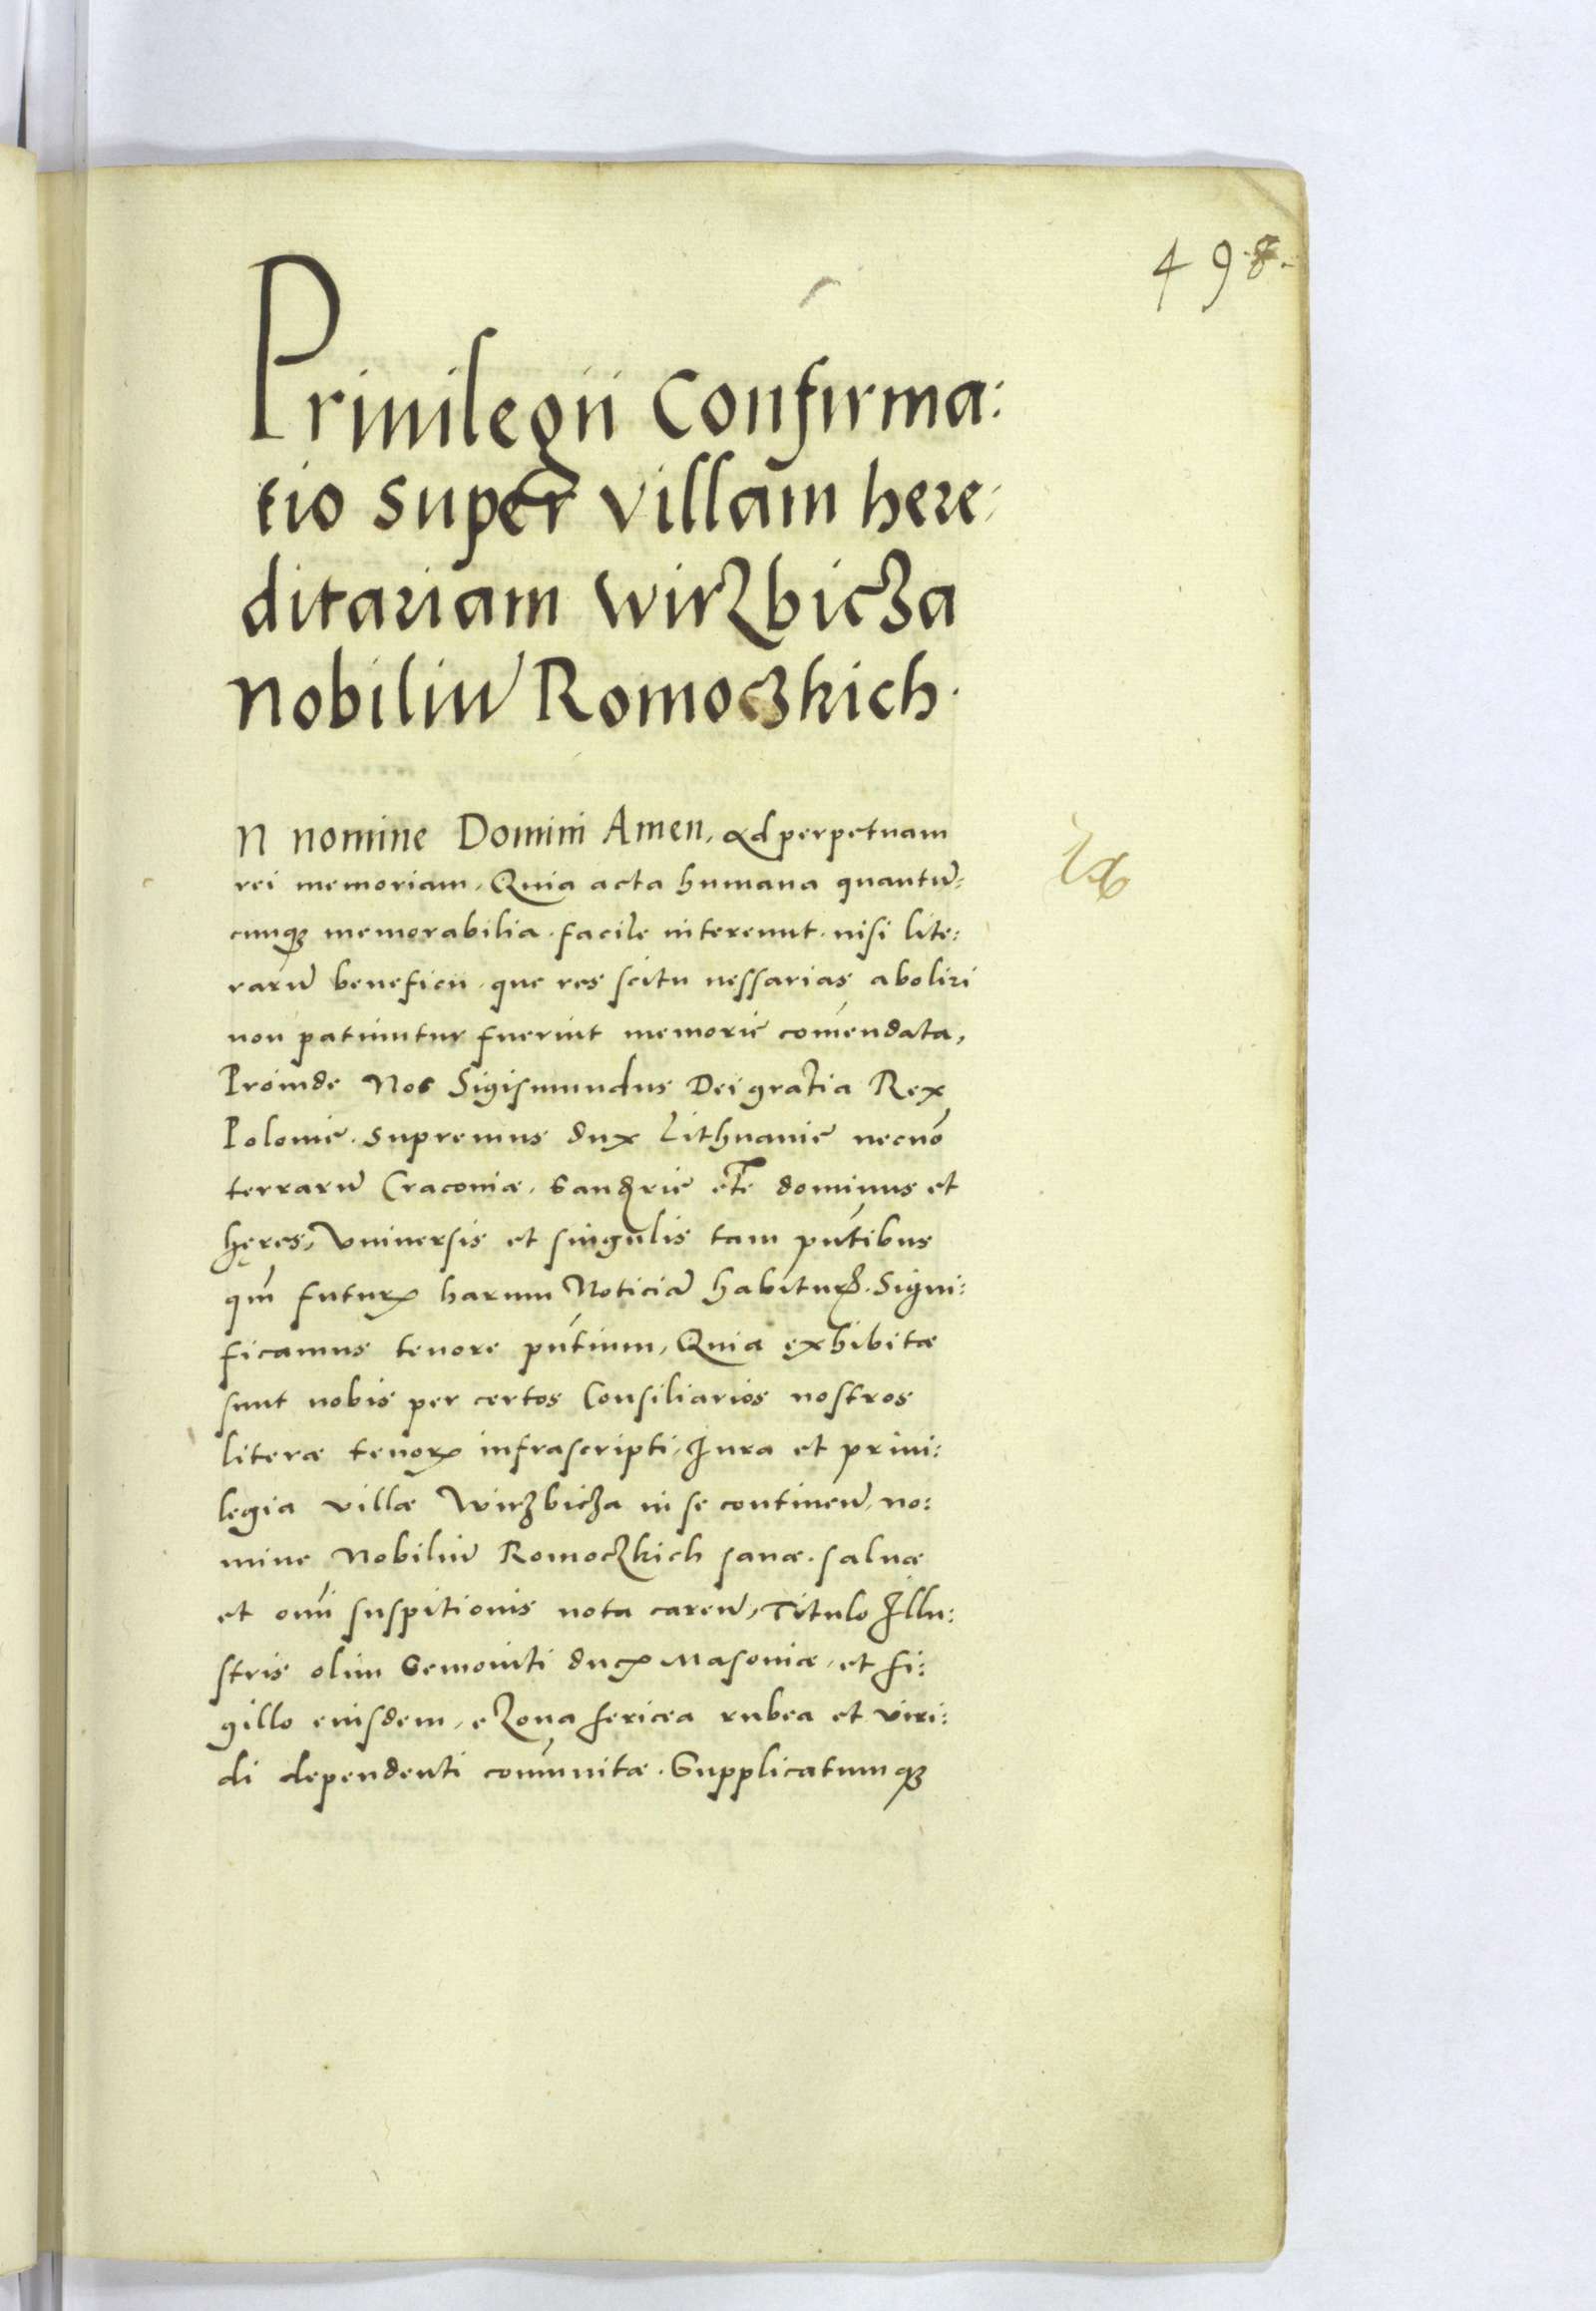 498.
Priuilegii Confirma:
tio super villam here,
ditariam Wirzbicza
Nobiliũ Romoczkich.
N nomine Domini Amen, Ad perpetuam
rei memoriam, Quia acta humana quantũ:
cunq3 memorabilia. facile intereunt. nisi lite:
rarũ beneficii. que res scitu nessarias aboliri
non patiuntur fuerint memorie com̃endata,
Proinde Nos Sigismundus Dei gratia Rex
Polonie. supremus dux Lithuanie necnõ
terrarũ Cracouiæ, Sandꝝie etc̃ dominus et
hęres, Vniuersis et singulis tam pñtibus
qm̃ futurꝝ harum Noticiã habiturꝝ. Signi:
ficamus tenore pñtium, Quia ęxhibitæ
sunt nobis per certos Consiliarios nostros
literæ tenorꝝ infrascripti, Jura et priui:
legia villæ Wirzbicza in se contineñ, no:
mine Nobiliũ Romoczkich sanæ. saluæ
et om̃i suspitionis nota careñ, Titulo Illu:
stris olim Semouiti ducꝝ Masouiæ, et si:
gillo eiusdem, e Zona sericea rubea et viri:
di dependenti com̃unitæ. Supplicatumq3